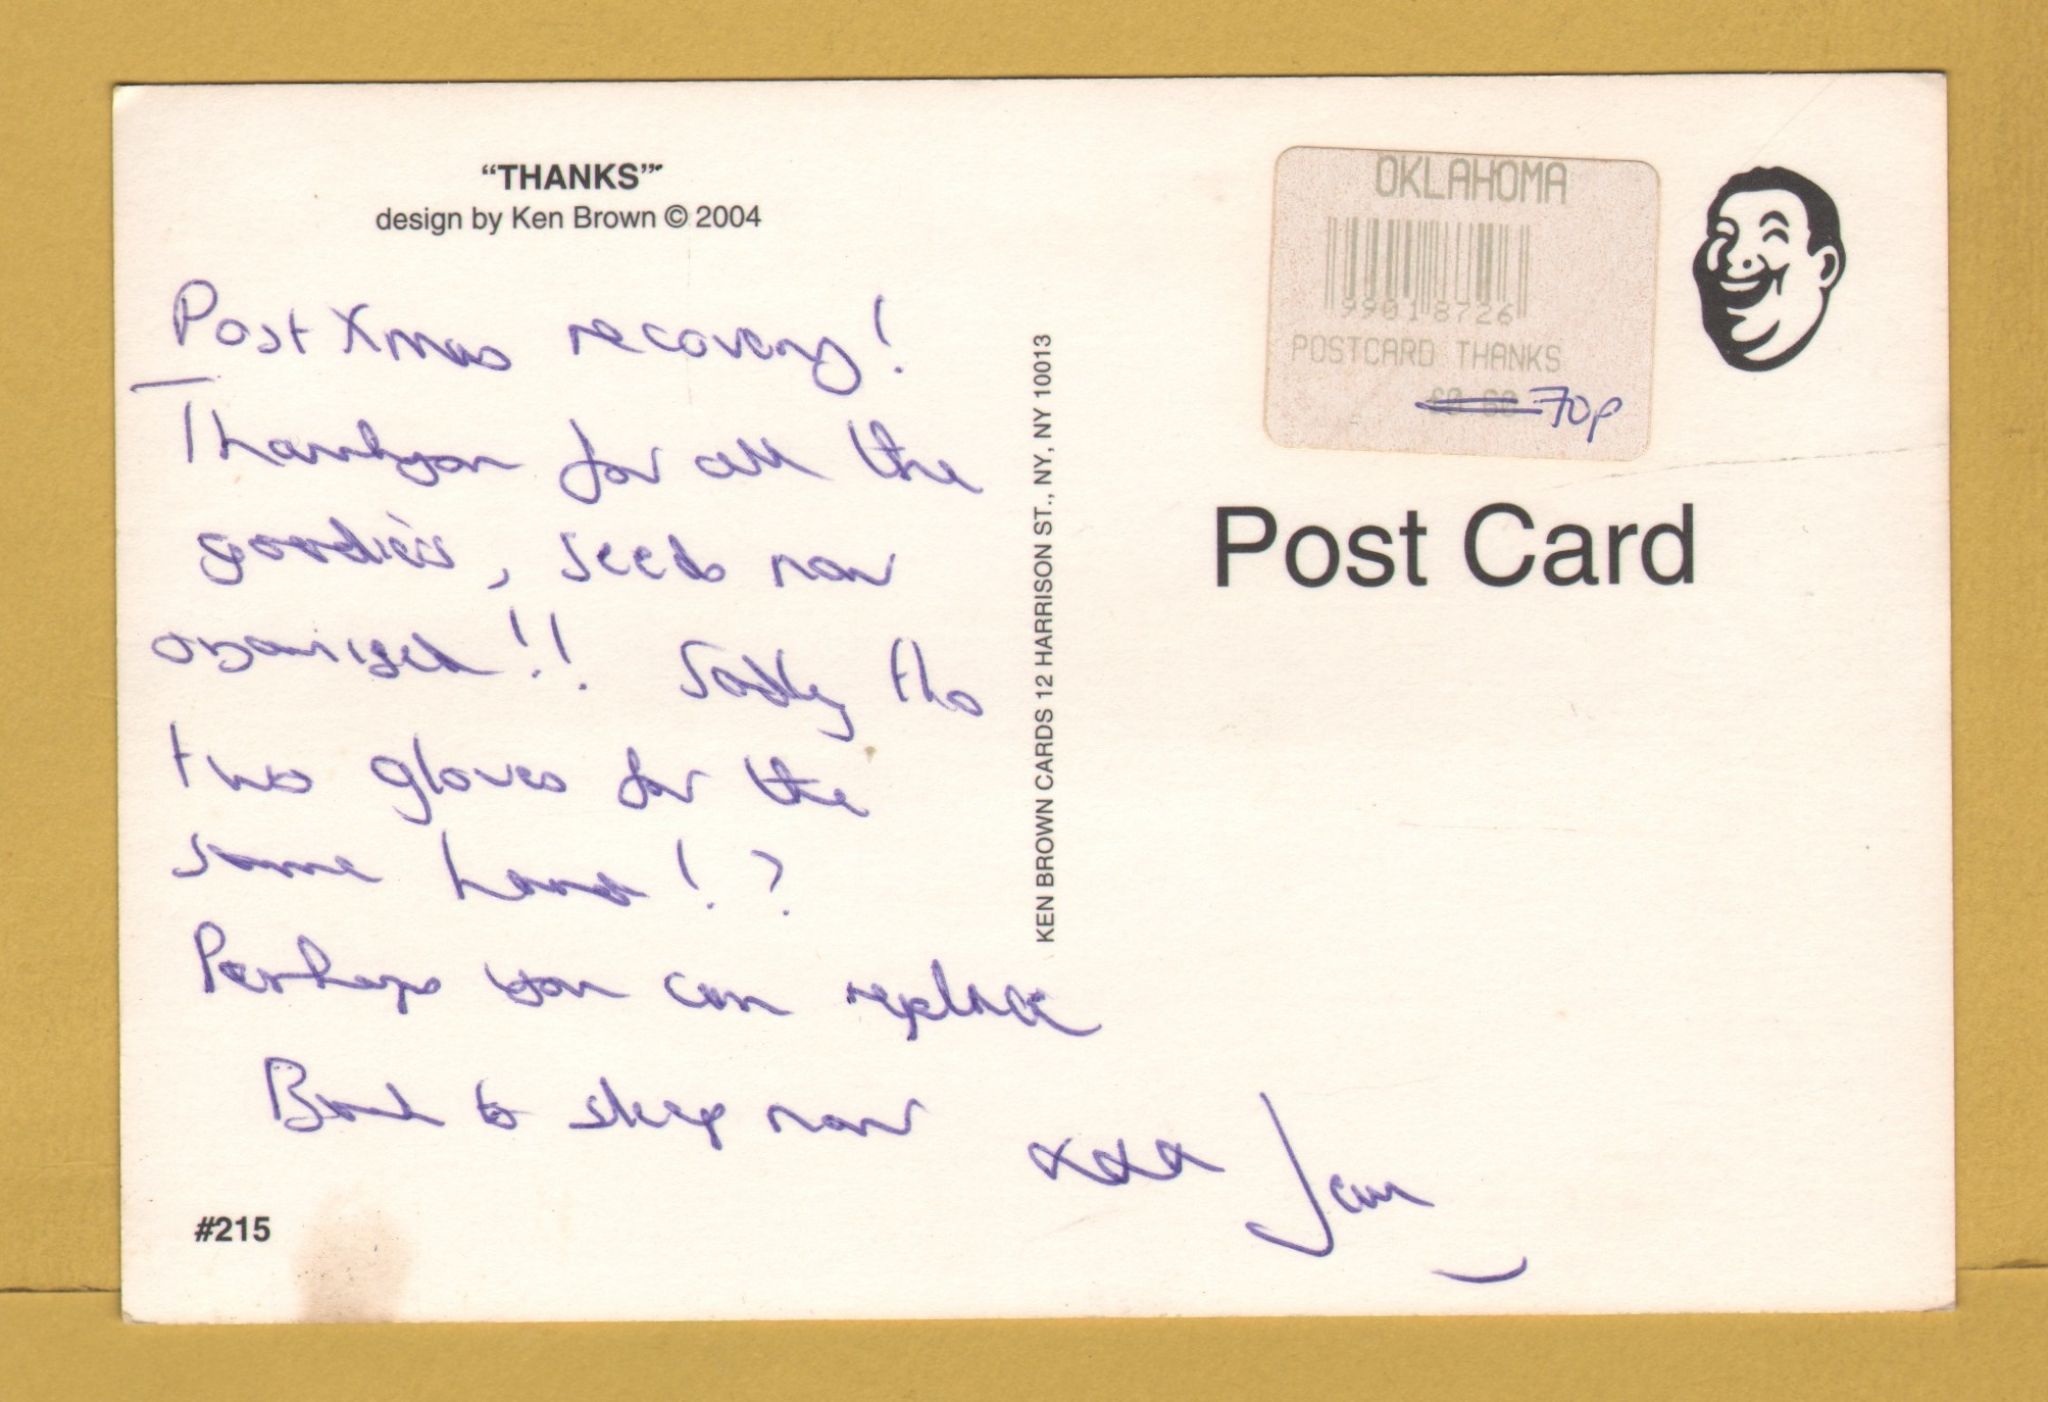 "THANKS"
design by Ken Brown © 2004
Post Xmas recovery!
Thankyou for all the
goodies, seeds now
organised!! Sadly tho
two gloves for the
same hand!?
Perhaps you can replace
Back to sleep now
xxx Jan
#215
KEN BROWN CARDS 12 HARRISON ST., NY, NY 10013
OKLAHOMA
99018726
POSTCARD THANKS
£0.60 70p
Post Card